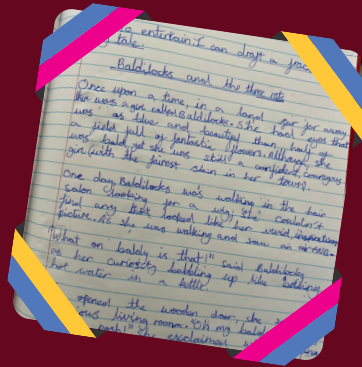 to entertain: I can draft a frac
tale.
Baldilocks and the three
Once upon a time, in a land far far away
ther was a girl called Baldilocks. She had eyes that
was as blue and beautiful than half the
a field full of fantastic flowers. Although she
was bald, yet she was still a confident, courageous
girl (with the fairest skin in her town).
One day, Baldilocks was walking in the hair
salon looking for a wig. She couldn't
find any that looked like her vivid inspiration
picture. As she was walking and saw an
"What on baldy is that!" said Baldilocks
as her curiosity bubbling up like boiling
hot water in a kettle.
opened the wooden door, she
living room. "Oh my bald
gosh!" she exclaimed